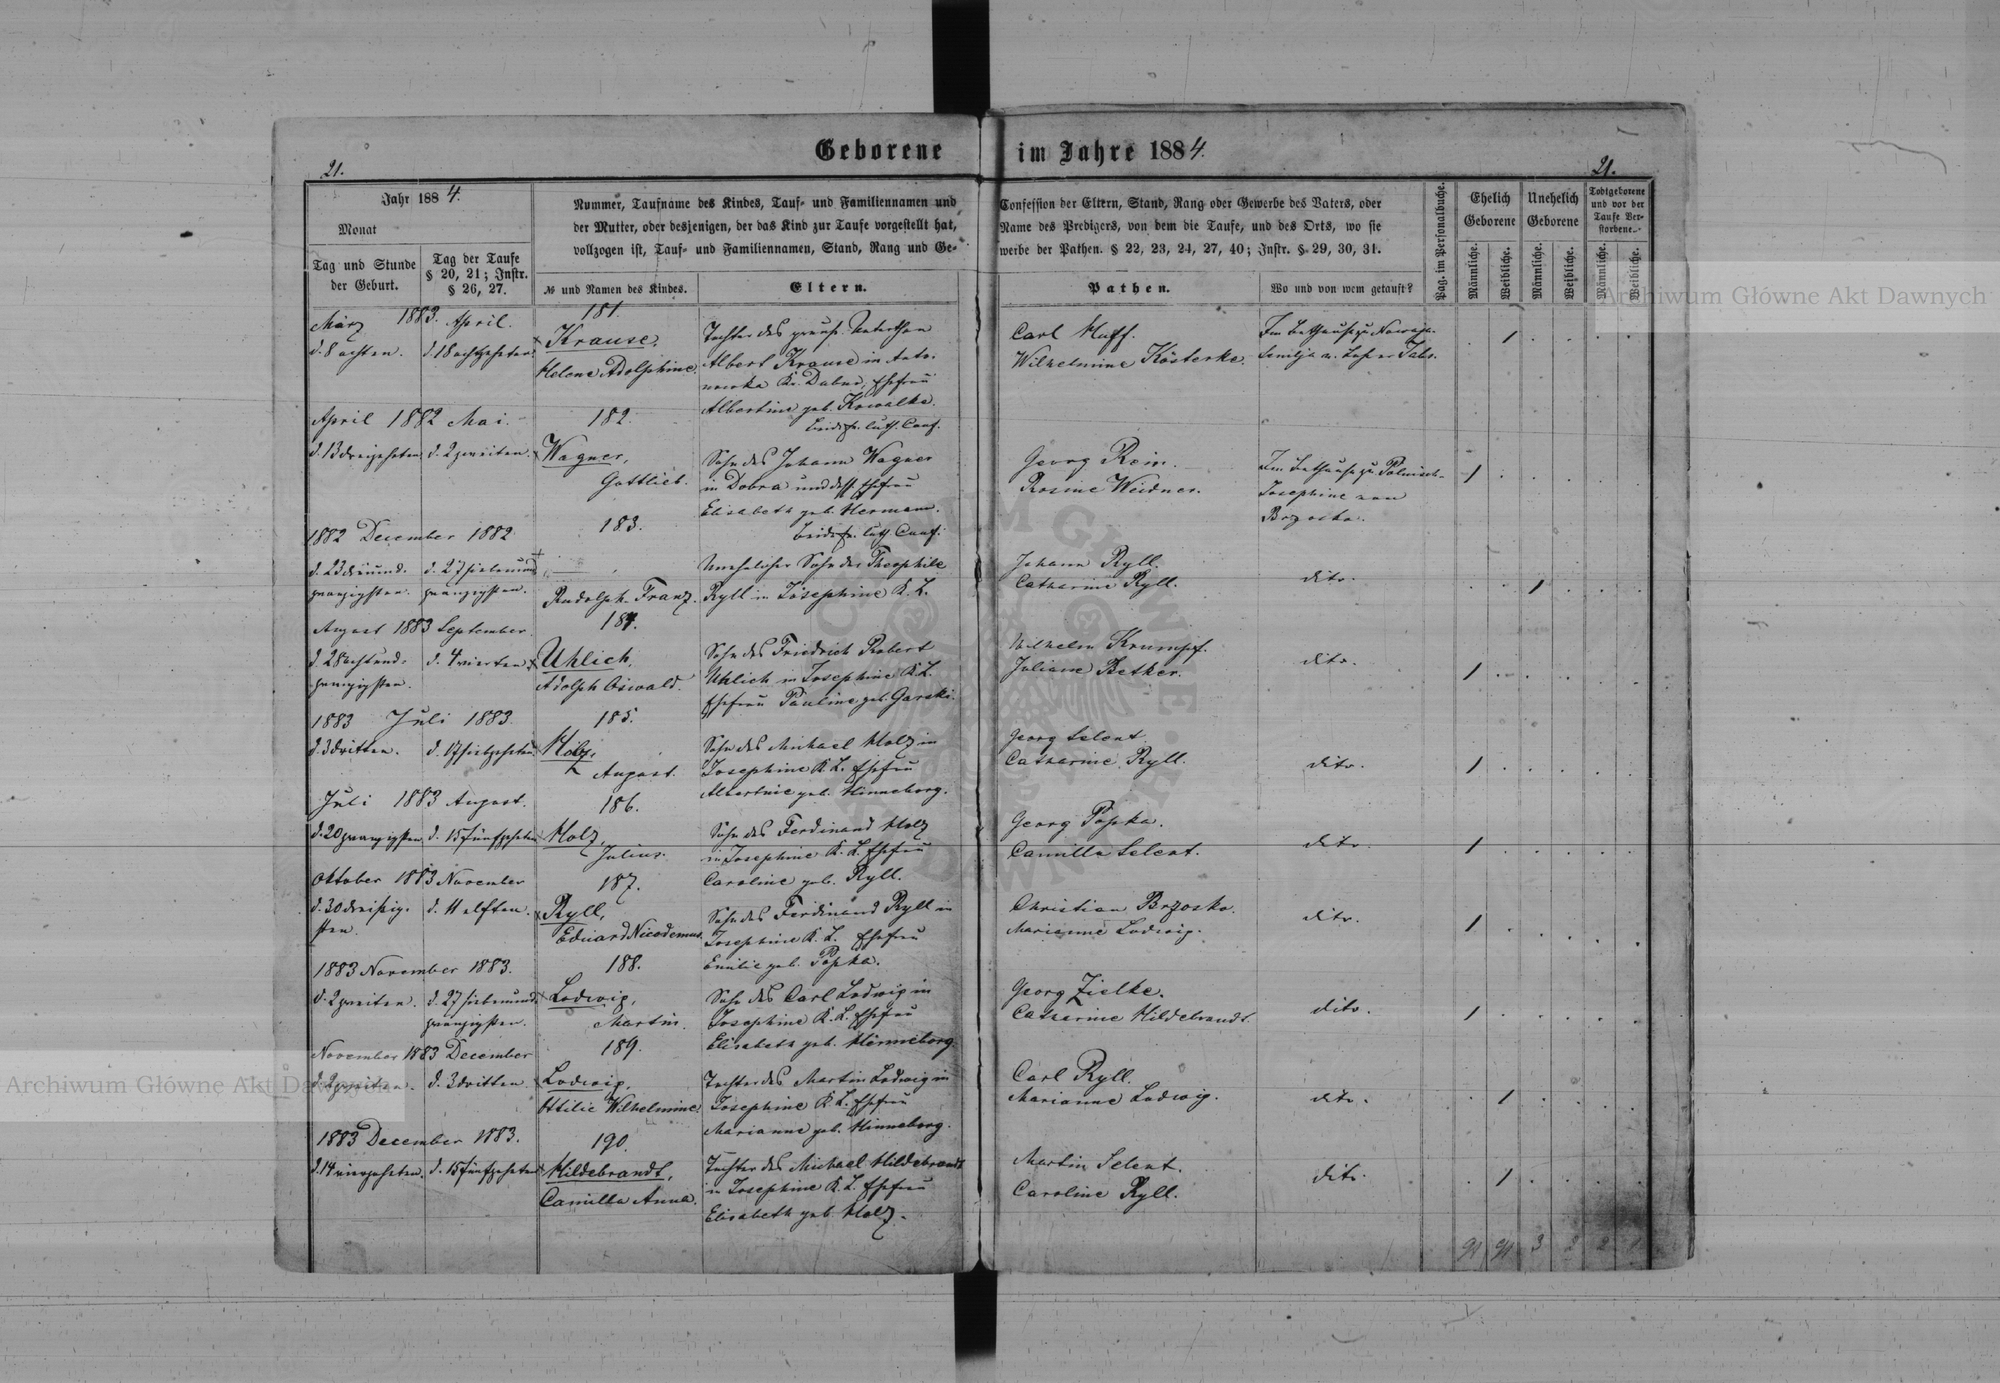 Geborene im Jahre 1884.
21.
21.
Jahr 1884.
Monat
Tag und Stunde der Geburt.
Tag der Taufe § 20, 21; Instr. § 26, 27.
Nummer, Taufname des Kindes, Tauf- und Familiennamen und
der Mutter, oder desjenigen, der das Kind zur Taufe vorgestellt hat,
vollzogen ist, Tauf- und Familiennamen, Stand, Rang und Ge-
№ und Namen des Kindes.
Eltern.
Confession der Eltern, Stand, Rang oder Gewerbe des Vaters, oder
Name des Predigers, von dem die Taufe, und des Orts, wo sie
werbe der Pathen. § 22, 23, 24, 27, 40; Instr. § 29, 30, 31.
Pathen.
Wo und von wem getauft?
Pag. im Personalbuche.
Ehelich Geborene
Unehelich Geborene
Todtgeborene und vor der Taufe Verstorbene.
Männliche.
Weibliche.
Männliche.
Weibliche.
Männliche.
Weibliche.
März 1883. April.
181.
d. 8 achten. d. 18 achtzehnten
Krause,
Helene Adolphine.
Tochter des preuß. Unterthan
Albert Krause in Anto-
nowka Kr. Dubno, Ehefrau
Albertine geb. Kowalke.
beide ev. luth. Conf.
Carl Huff.
Wilhelmine Kösterke.
Im Bethause zu
April 1882 Mai.
182.
d. 13 dreizehnten d. 2 zweiten.
Wagner,
Gottlieb.
Sohn des Johann Wagner
in Dobra und dess. Ehefrau
Elisabeth geb. Hermann.
beide ev. luth. Conf.
Georg Rein.
Rosine Weidner.
Im Bethause zu Polnisch-
Josephine von
Brzoska.
1882 December 1882
183.
d. 23 dreiund- d. 27 siebenund
zwanzigsten. zwanzigsten.
Rudolph Franz.
Unehelicher Sohn der Theophile
Ryll in Josephine K. L.
Johann Ryll.
Catharine Ryll.
dito.
August 1883 September
184.
d. 28 achtund- d. 4 vierten
zwanzigsten.
Uhlich,
Adolph Oswald.
Sohn des Friedrich Robert
Uhlich in Josephine K. L.
Ehefrau Pauline geb. Garski.
Wilhelm Krumpf.
Juliane Betker.
dito.
1883 Juli 1883
185.
d. 3 dritten. d. 17 siebzehnten
Holz,
August.
Sohn des Michael Holz in
Josephine K. L. Ehefrau
Albertine geb. Hinneborg.
Georg Selent
Catharine Ryll.
dito.
Juli 1883 August.
186.
d. 20 zwanzigsten d. 15 fünfzehnten
Holz,
Julius.
Sohn des Ferdinand Holz
in Josephine K. L. Ehefrau
Caroline geb. Ryll.
Georg Popka.
Camilla Selent.
dito.
Oktober 1883 November
187.
d. 30 dreißig- d. 11 elften.
sten.
Ryll,
Eduard Nicodemus.
Sohn des Ferdinand Ryll in
Josephine K. L. Ehefrau
Emilie geb. Popka.
Christian Brzoska.
Marianne Ludwig.
dito.
1883 November 1883.
188.
d. 2 zweiten. d. 27 siebenund
zwanzigsten.
Ludwig,
Martin.
Sohn des Carl Ludwig in
Josephine K. L. Ehefrau
Elisabeth geb. Hinneborg.
Georg Zielke.
Catharine Hildebrandt.
dito.
November 1883 December
189.
d. 2 zweiten. d. 3 dritten.
Ludwig,
Ottilie Wilhelmine.
Tochter des Martin Ludwig in
Josephine K. L. Ehefrau
Marianne geb. Hinneborg.
Carl Ryll.
Marianne Ludwig.
dito.
1883 December 1883.
190.
d. 14 vierzehnten. d. 15 fünfzehnten
Hildebrandt,
Camilla Anna.
Tochter des Michael Hildebrandt
in Josephine K. L. Ehefrau
Elisabeth geb. Holz.
Martin Selent.
Caroline Ryll.
dito.
91 91 3 2 2 1
Archiwum Główne Akt Dawnych
Archiwum Główne Akt Dawnych